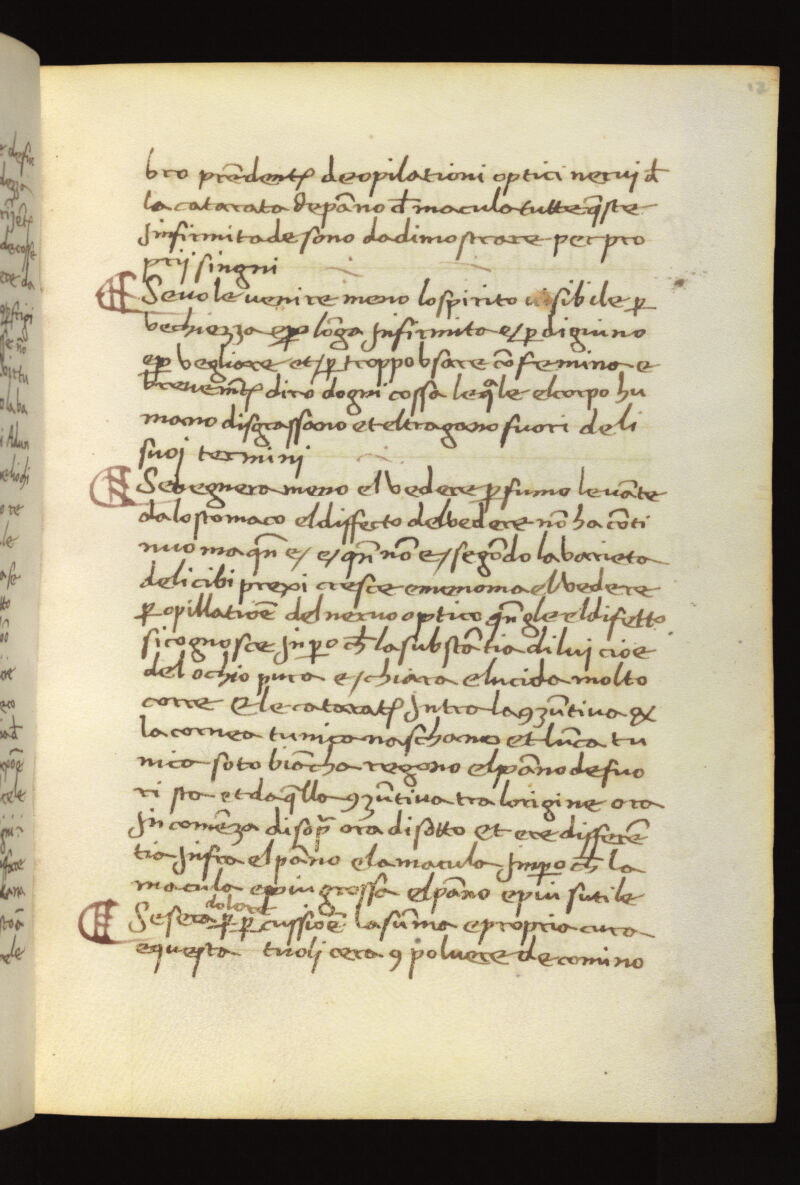 12
bro prēdentꝭ de opilationi optici nerui đ
la catarata de pāno đ macula tutte q̄ste
Infirmitade sono da dimostrare per pro
prij singni
Se uole uenire meno lo spirito uisibile ꝑ
vechiezza eꝑ lōga Infirmita e ꝑ digiuno
eꝑ vegliare et ꝑ troppo vsare cō femina e
brevemtꝭ diro dogni cossa le q̄le el corpo hu
mano disgrassano et el tragano fuori deli
suoj termini
Se vegnera meno el vedere ꝑ fumo levāte
da lo stomaco el diffecto del vedere nō ha cōti
nuo ma qn̄ e e qn̄ nōn e segōdo la varieta
deli cibi prexi cresce e menoma el vedere
ꝑ opillatiōe del neruo optico qn̄ gle el difetto
si cognosce Inꝑo ch̄ la substātia di luj cioe
del ochio pura e chiara e lucida molto
corre E le cataratꝭ Intra la ꝯzūtiua &
la cornea tunica naschano et lūca tu
nica soto biācha regono el pāno de fuo
ri sta et da q̄lla ꝯzūtiua tra lorigine ora
Incomēza disoꝑ ora disotto et ere differē
tia Infra el pāno e la macula Inꝑo ch̄ la
macula e piu grossa el pāno e piu sutile
Se sera dolore ꝑ ꝑcussiōe la sūma e propria cura
e questa tuoli cera ꝯ poluere de comino